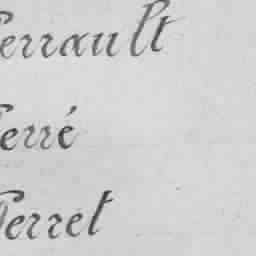 Perrault
Ferré
Perret